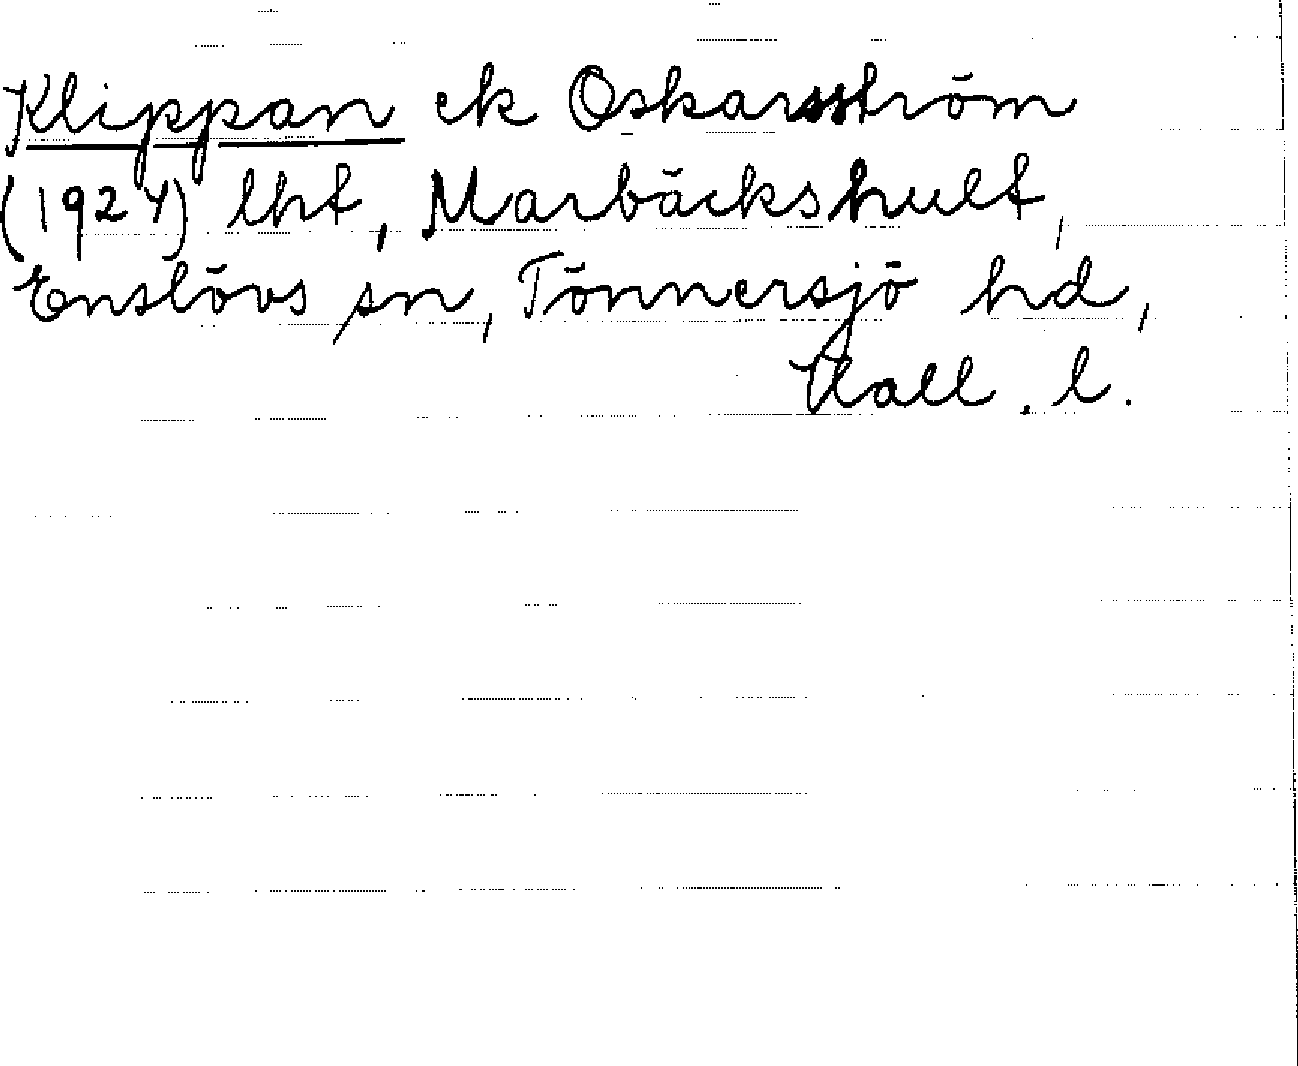 Klippan ek Oskarsström
(1924) lht, Marbäckshult,
Enslövs sn, Tönnersjö hd,
Hall. l.